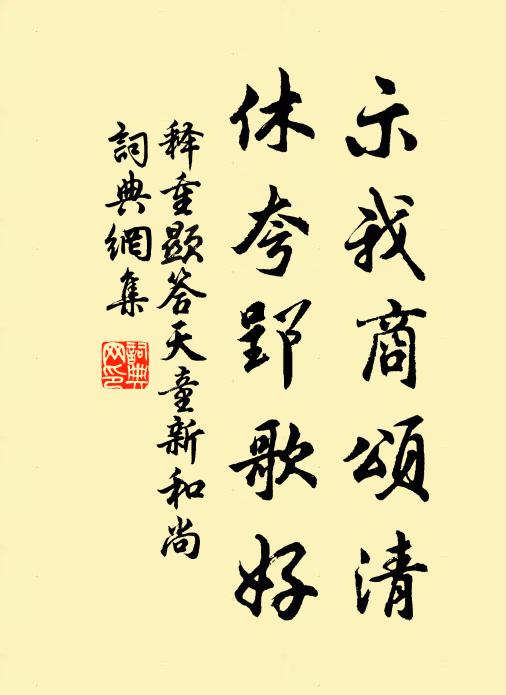 示我商頌清
休夸郢歌好
释重顯答天童新和尚
詞典網集
詞典
网印